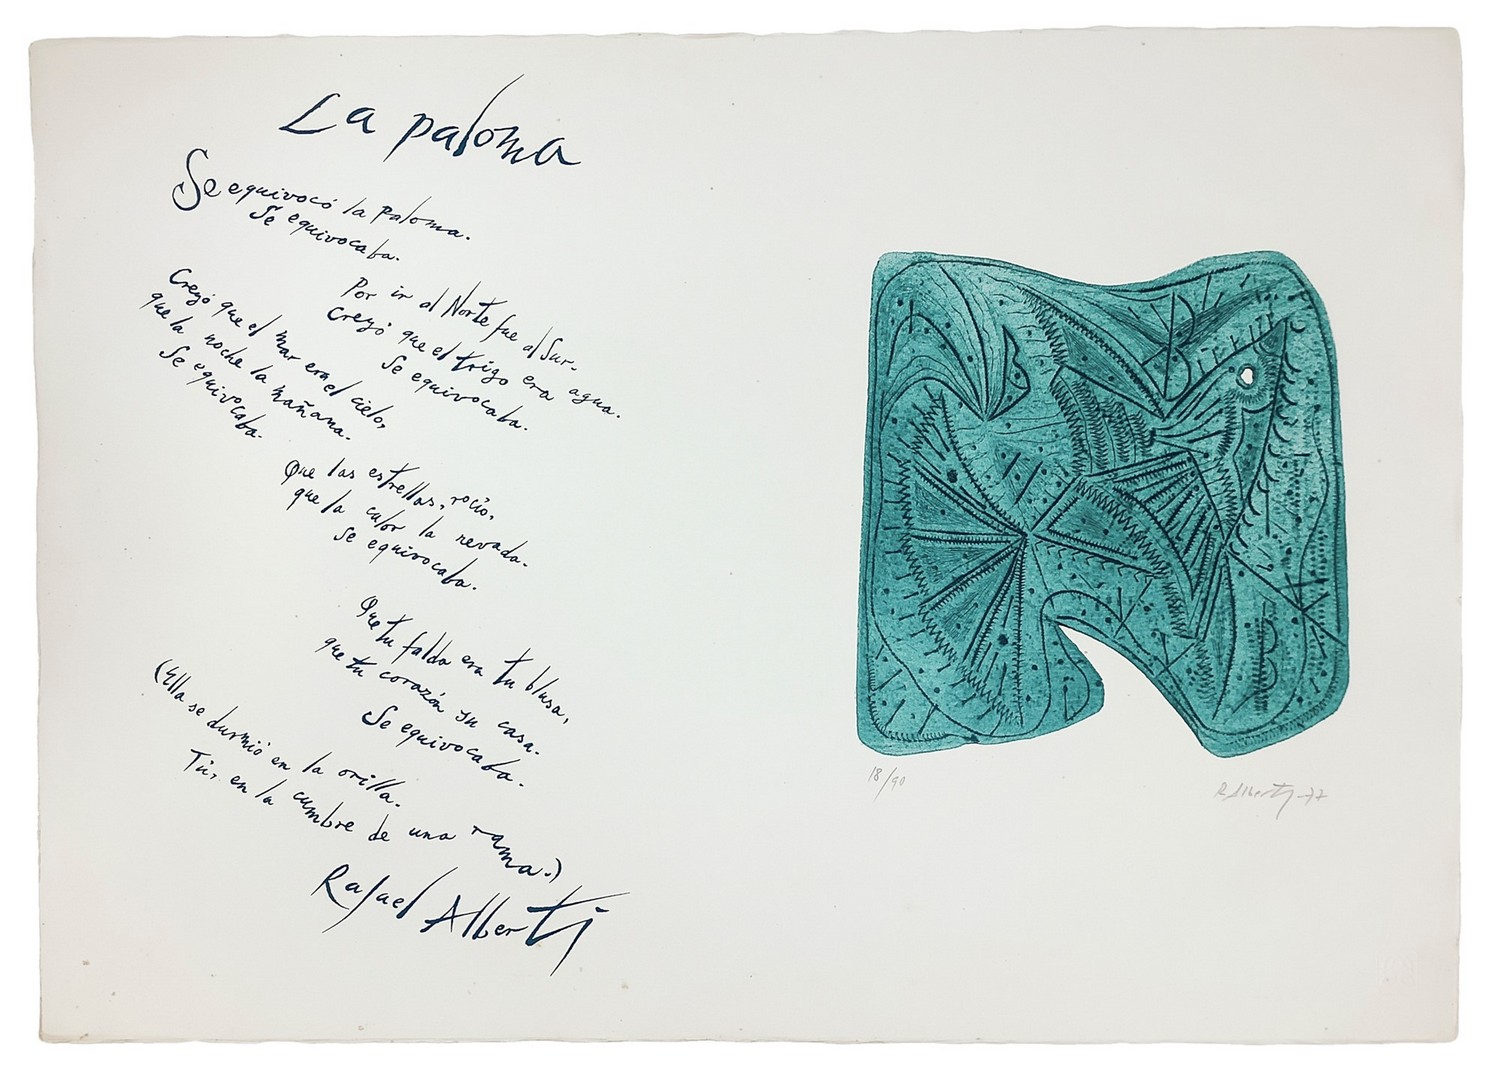 La paloma
Se equivocó la paloma.
Se equivocaba.
Por ir al Norte fue al Sur.
Creyó que el trigo era agua.
Se equivocaba.
Creyó que el mar era el cielo,
que la noche la mañana.
Se equivocaba.
Que las estrellas, rocío,
que la calor la nevada.
Se equivocaba.
Que tu falda era tu blusa,
que tu corazón su casa.
Se equivocaba.
(Ella se durmió en la orilla.
Tú, en la cumbre de una rama.)
Rafael Alberti
18/90
R Alberti-77